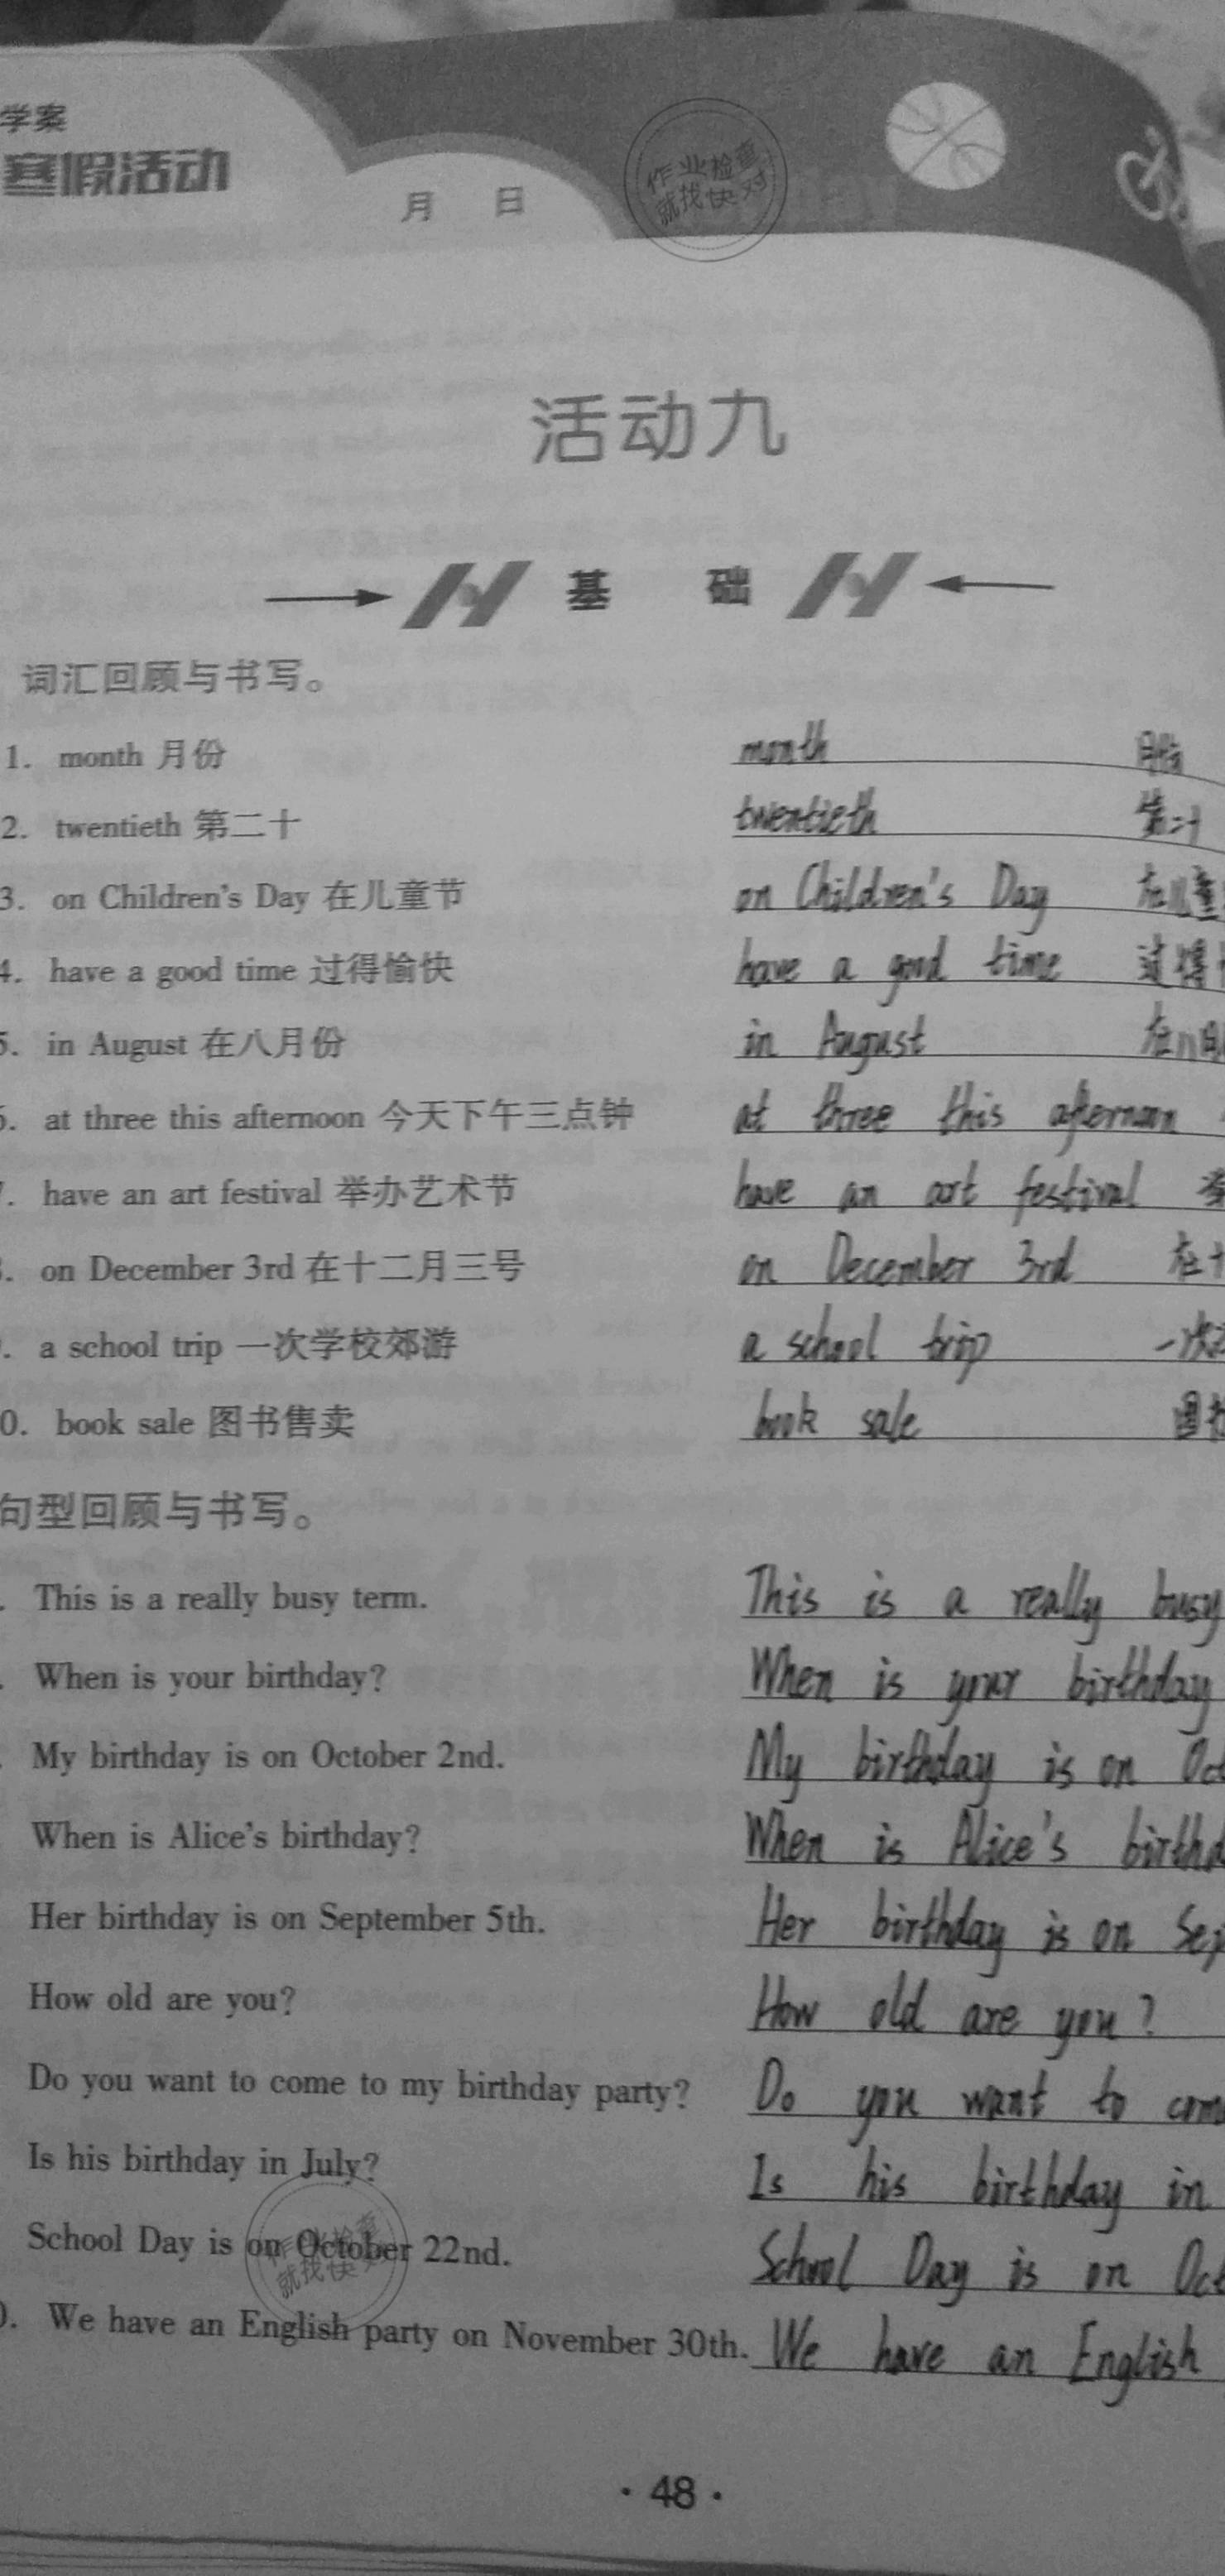 学案
寒假活动
月 日
作业检查
就找快对
活动九
基 础
词汇回顾与书写。
1. month 月份 month 月份
2. twentieth 第二十 twentieth 第二十
3. on Children's Day 在儿童节 on Children's Day 在儿童
4. have a good time 过得愉快 have a good time 过得
5. in August 在八月份 in August 在八月
. at three this afternoon 今天下午三点钟 at three this afternoon
. have an art festival 举办艺术节 have an art festival 举
. on December 3rd 在十二月三号 on December 3rd 在十
. a school trip 一次学校郊游 a school trip 一次
0. book sale 图书售卖 book sale 图书
句型回顾与书写。
. This is a really busy term. This is a really busy
. When is your birthday? When is your birthday
. My birthday is on October 2nd. My birthday is on Oct
When is Alice's birthday? When is Alice's birthd
Her birthday is on September 5th. Her birthday is on Sep
How old are you? How old are you?
Do you want to come to my birthday party? Do you want to com
Is his birthday in July? Is his birthday in
School Day is on October 22nd. School Day is on Oct
作业检查
就找快对
0. We have an English party on November 30th. We have an English
·48·